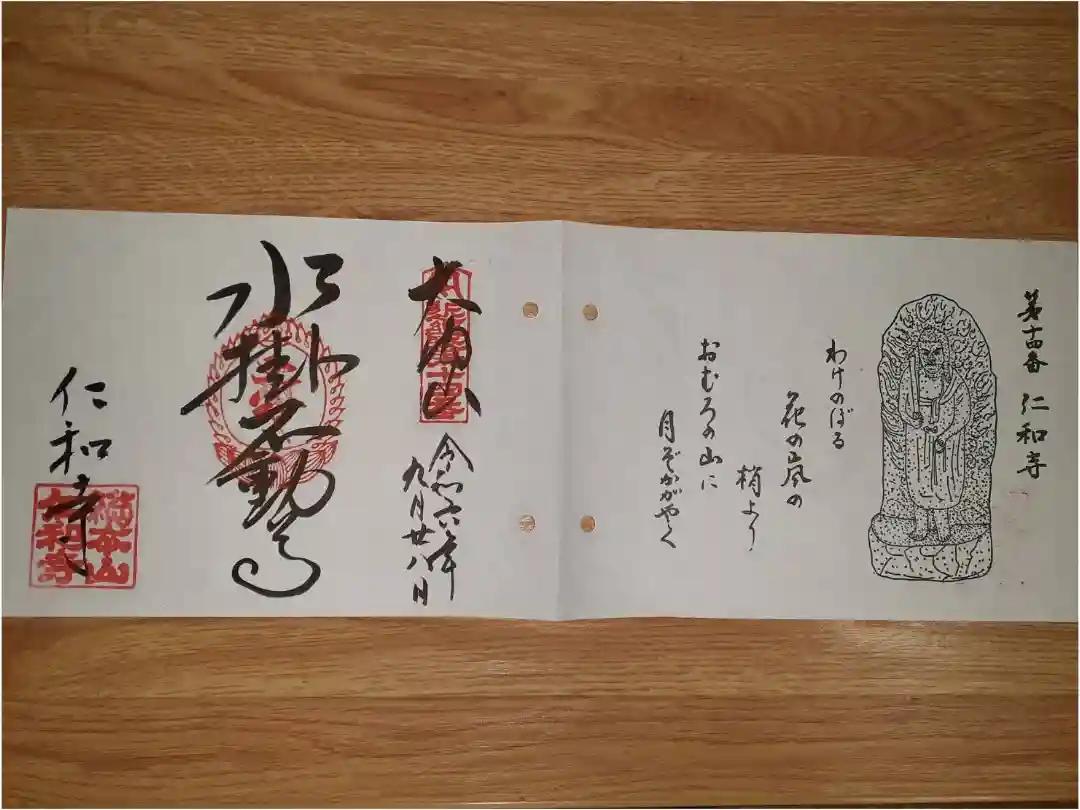 第十四番 仁和寺
わけのぼる
花の嵐の
梢より
おむろの山に
月ぞかがやく
大内山
令和六年
九月廿八日
水掛不動尊
仁和寺
總本山
仁和寺